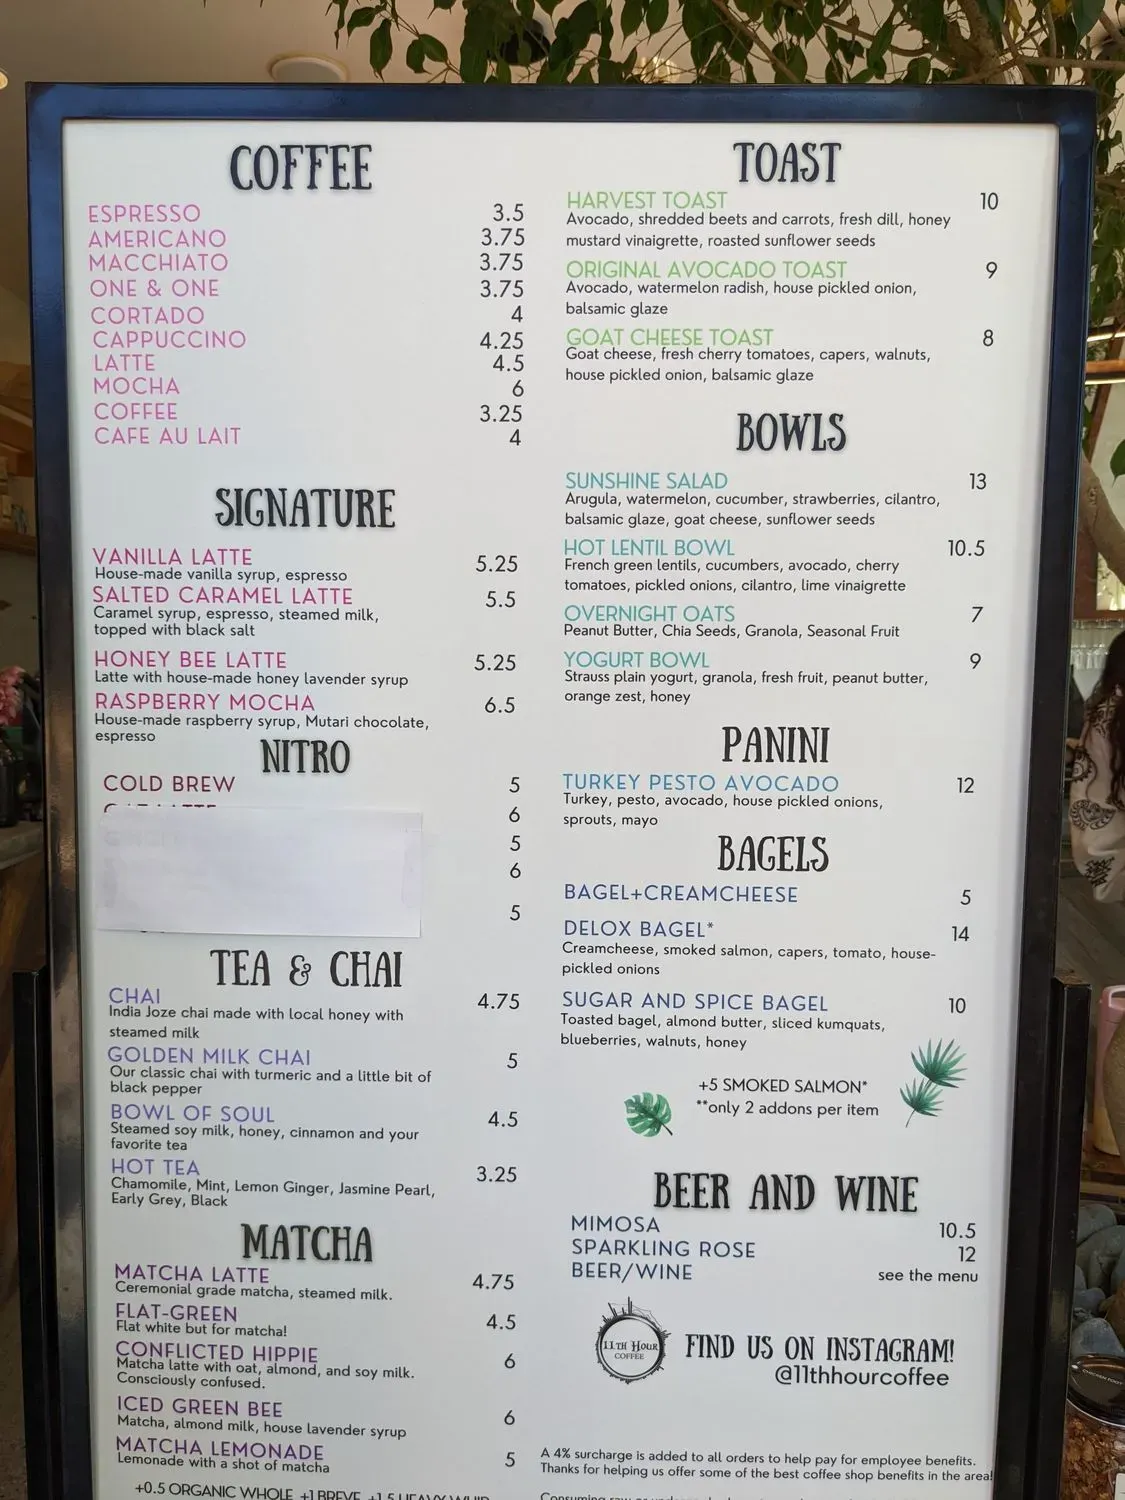 COFFEE
ESPRESSO 3.5
AMERICANO 3.75
MACCHIATO 3.75
ONE & ONE 3.75
CORTADO 4
CAPPUCCINO 4.25
LATTE 4.5
MOCHA 6
COFFEE 3.25
CAFE AU LAIT 4
SIGNATURE
VANILLA LATTE 5.25
House-made vanilla syrup, espresso
SALTED CARAMEL LATTE 5.5
Caramel syrup, espresso, steamed milk,
topped with black salt
HONEY BEE LATTE 5.25
Latte with house-made honey lavender syrup
RASPBERRY MOCHA 6.5
House-made raspberry syrup, Mutari chocolate,
espresso
NITRO
COLD BREW 5
6
5
6
5
TEA & CHAI
CHAI 4.75
India Joze chai made with local honey with
steamed milk
GOLDEN MILK CHAI 5
Our classic chai with turmeric and a little bit of
black pepper
BOWL OF SOUL 4.5
Steamed soy milk, honey, cinnamon and your
favorite tea
HOT TEA 3.25
Chamomile, Mint, Lemon Ginger, Jasmine Pearl,
Early Grey, Black
MATCHA
MATCHA LATTE 4.75
Ceremonial grade matcha, steamed milk.
FLAT-GREEN 4.5
Flat white but for matcha!
CONFLICTED HIPPIE 6
Matcha latte with oat, almond, and soy milk.
Consciously confused.
ICED GREEN BEE 6
Matcha, almond milk, house lavender syrup
MATCHA LEMONADE 5
Lemonade with a shot of matcha
+0.5 ORGANIC WHOLE +1 BREVE +1.5 HEAVY WHIP
TOAST
HARVEST TOAST 10
Avocado, shredded beets and carrots, fresh dill, honey
mustard vinaigrette, roasted sunflower seeds
ORIGINAL AVOCADO TOAST 9
Avocado, watermelon radish, house pickled onion,
balsamic glaze
GOAT CHEESE TOAST 8
Goat cheese, fresh cherry tomatoes, capers, walnuts,
house pickled onion, balsamic glaze
BOWLS
SUNSHINE SALAD 13
Arugula, watermelon, cucumber, strawberries, cilantro,
balsamic glaze, goat cheese, sunflower seeds
HOT LENTIL BOWL 10.5
French green lentils, cucumbers, avocado, cherry
tomatoes, pickled onions, cilantro, lime vinaigrette
OVERNIGHT OATS 7
Peanut Butter, Chia Seeds, Granola, Seasonal Fruit
YOGURT BOWL 9
Strauss plain yogurt, granola, fresh fruit, peanut butter,
orange zest, honey
PANINI
TURKEY PESTO AVOCADO 12
Turkey, pesto, avocado, house pickled onions,
sprouts, mayo
BAGELS
BAGEL+CREAMCHEESE 5
DELOX BAGEL* 14
Creamcheese, smoked salmon, capers, tomato, house-
pickled onions
SUGAR AND SPICE BAGEL 10
Toasted bagel, almond butter, sliced kumquats,
blueberries, walnuts, honey
+5 SMOKED SALMON*
**only 2 addons per item
BEER AND WINE
MIMOSA 10.5
SPARKLING ROSE 12
BEER/WINE see the menu
11TH HOUR
COFFEE
FIND US ON INSTAGRAM!
@11thhourcoffee
A 4% surcharge is added to all orders to help pay for employee benefits.
Thanks for helping us offer some of the best coffee shop benefits in the area!